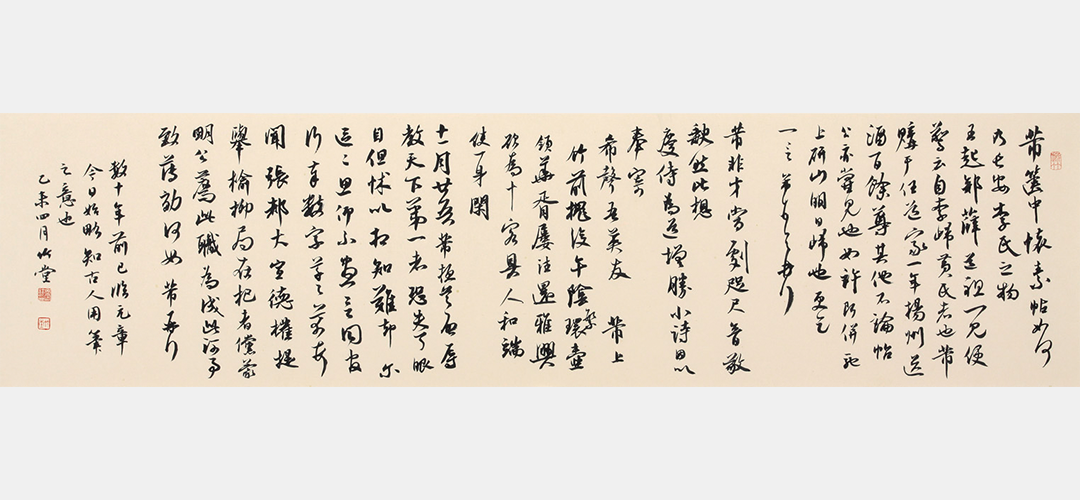 芾篋中懷素帖如何
乃長安李氏之物
王起部薛道祖一見便
驚云自李歸黃氏者也芾
購于任道家一年揚州送
酒百餘尊其他不論帖
公亦嘗見也如許即併馳
上研山明日歸也更乞
一言芾頓首再拜
芾非才當劇咫尺音敬
缺然此想
慶侍為道增勝小詩因以
奉寄
希聲吾英友 芾上
竹前槐後午陰環壺
繁
領華胥屢往還雅興
欲為十客具人和端
使一身閑
十一月廿五芾啟辱
教天下第一者恐失了眼
目但怵以相知難却尔
區區思仰不盡言同官
行奉數字草草芾頓首
聞張都大宣德權提
舉榆柳局在杞者儻蒙
明公薦此職為成此河事
致薄効何如芾再拜
數十年前已臨元章
今日始略知古人用筆
之意也
乙未四月竹堂